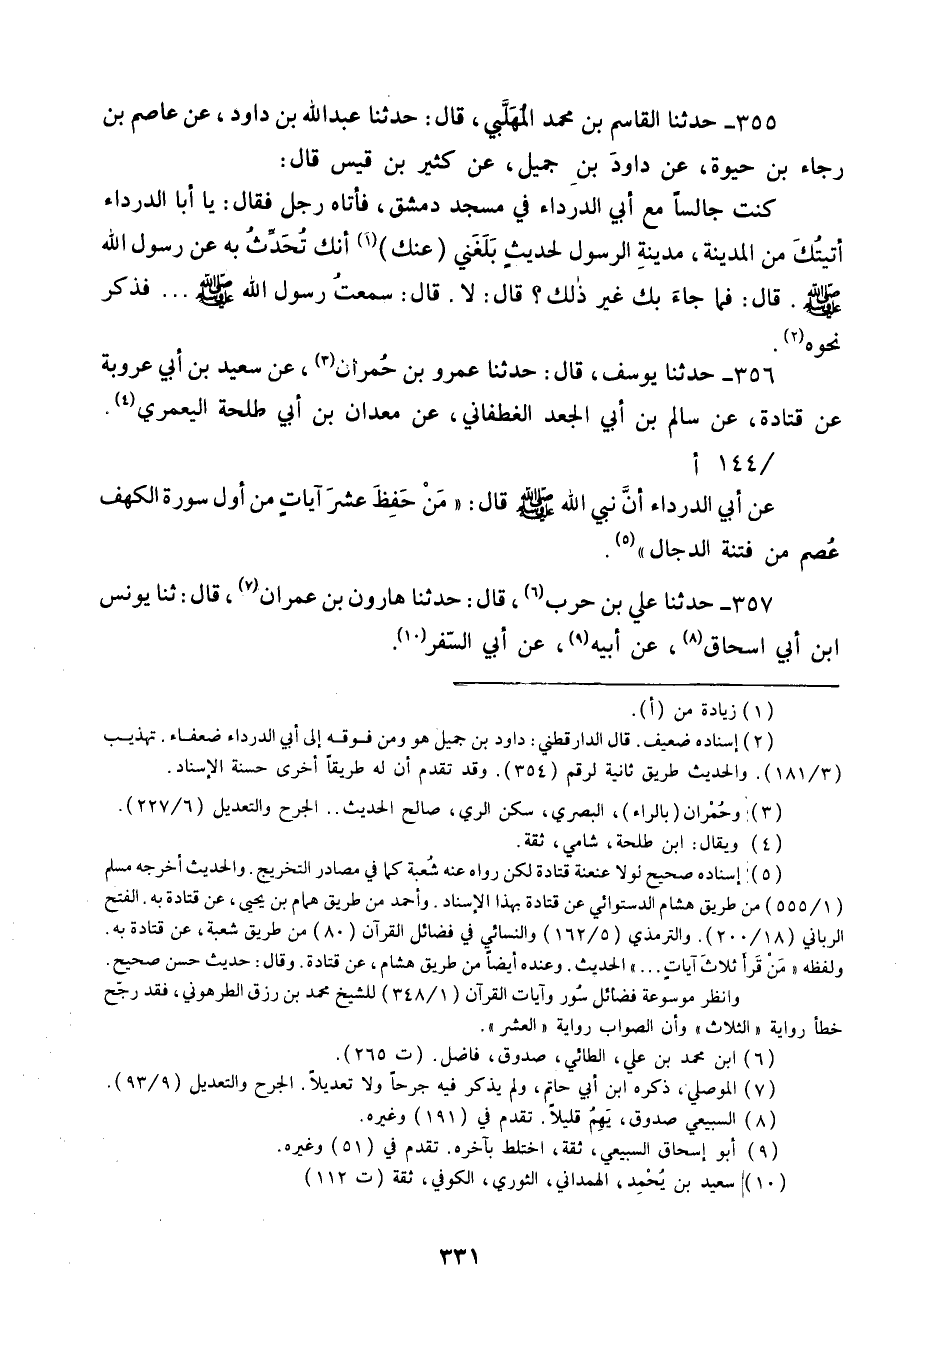 ٣٥٥ـ حدثنا القاسم بن محمد المُهَلَّبي، قال: حدثنا عبدالله بن داود، عن عاصم بن
رجاء بن حيوة، عن داودَ بنِ جميل، عن كثير بن قيس قال:
كنت جالساً مع أبي الدرداء في مسجد دمشق، فأتاه رجل فقال: يا أبا الدرداء
أتيتُكَ من المدينة، مدينةِ الرسول لحديثٍ بَلَغَني (عنك)(١) أنك تُحَدِّثُ به عن رسول الله
ﷺ. قال: فما جاءَ بك غير ذٰلك؟ قال: لا. قال: سمعتُ رسول الله ﷺ ... فذكر
نحوه(٢).
٣٥٦ـ حدثنا يوسف، قال: حدثنا عمرو بن حُمران(٣)، عن سعيد بن أبي عروبة
عن قتادة، عن سالم بن أبي الجعد الغطفاني، عن معدان بن أبي طلحة اليعمري(٤).
/١٤٤ أ
عن أبي الدرداء أنَّ نبي الله ﷺ قال: «مَنْ حَفِظَ عشرَ آياتٍ من أول سورة الكهف
عُصم من فتنة الدجال»(٥).
٣٥٧ـ حدثنا علي بن حرب(٦)، قال: حدثنا هارون بن عمران(٧)، قال: ثنا يونس
ابن أبي اسحاق(٨)، عن أبيه(٩)، عن أبي السّفر(١٠).
(١) زيادة من (أ).
(٢) إسناده ضعيف. قال الدارقطني: داود بن جميل هو ومن فوقه إلى أبي الدرداء ضعفاء. تهذيب
(١٨١/٣). والحديث طريق ثانية لرقم (٣٥٤). وقد تقدم أن له طريقاً أخرى حسنة الإسناد.
(٣) وحُمْران (بالراء)، البصري، سكن الري، صالح الحديث.. الجرح والتعديل (٢٢٧/٦).
(٤) ويقال: ابن طلحة، شامي، ثقة.
(٥) إسناده صحيح لولا عنعنة قتادة لكن رواه عنه شُعبة كما في مصادر التخريج. والحديث أخرجه مسلم
(٥٥٥/١) من طريق هشام الدستوائي عن قتادة بهذا الإسناد. وأحمد من طريق همام بن يحيى، عن قتادة به. الفتح
الرباني (٢٠٠/١٨). والترمذي (١٦٢/٥) والنسائي في فضائل القرآن (٨٠) من طريق شعبة، عن قتادة به.
ولفظه «مَنْ قَرأ ثلاثَ آياتٍ...» الحديث. وعنده أيضاً من طريق هشام، عن قتادة. وقال: حديث حسن صحيح.
وانظر موسوعة فضائل سُور وآيات القرآن (٣٤٨/١) للشيخ محمد بن رزق الطرهوني، فقد رجّح
خطأ رواية «الثلاث» وأن الصواب رواية «العشر».
(٦) ابن محمد بن علي، الطائي، صدوق، فاضل. (ت ٢٦٥).
(٧) الموصلي، ذكره ابن أبي حاتم، ولم يذكر فيه جرحاً ولا تعديلاً. الجرح والتعديل (٩٣/٩).
(٨) السبيعي صدوق، يَهِمُ قليلاً. تقدم في (١٩١) وغيره.
(٩) أبو إسحاق السبيعي، ثقة، اختلط بآخره. تقدم في (٥١) وغيره.
(١٠) سعيد بن يُحْمِد، الهمداني، الثوري، الكوفي، ثقة (ت ١١٢)
٣٣١